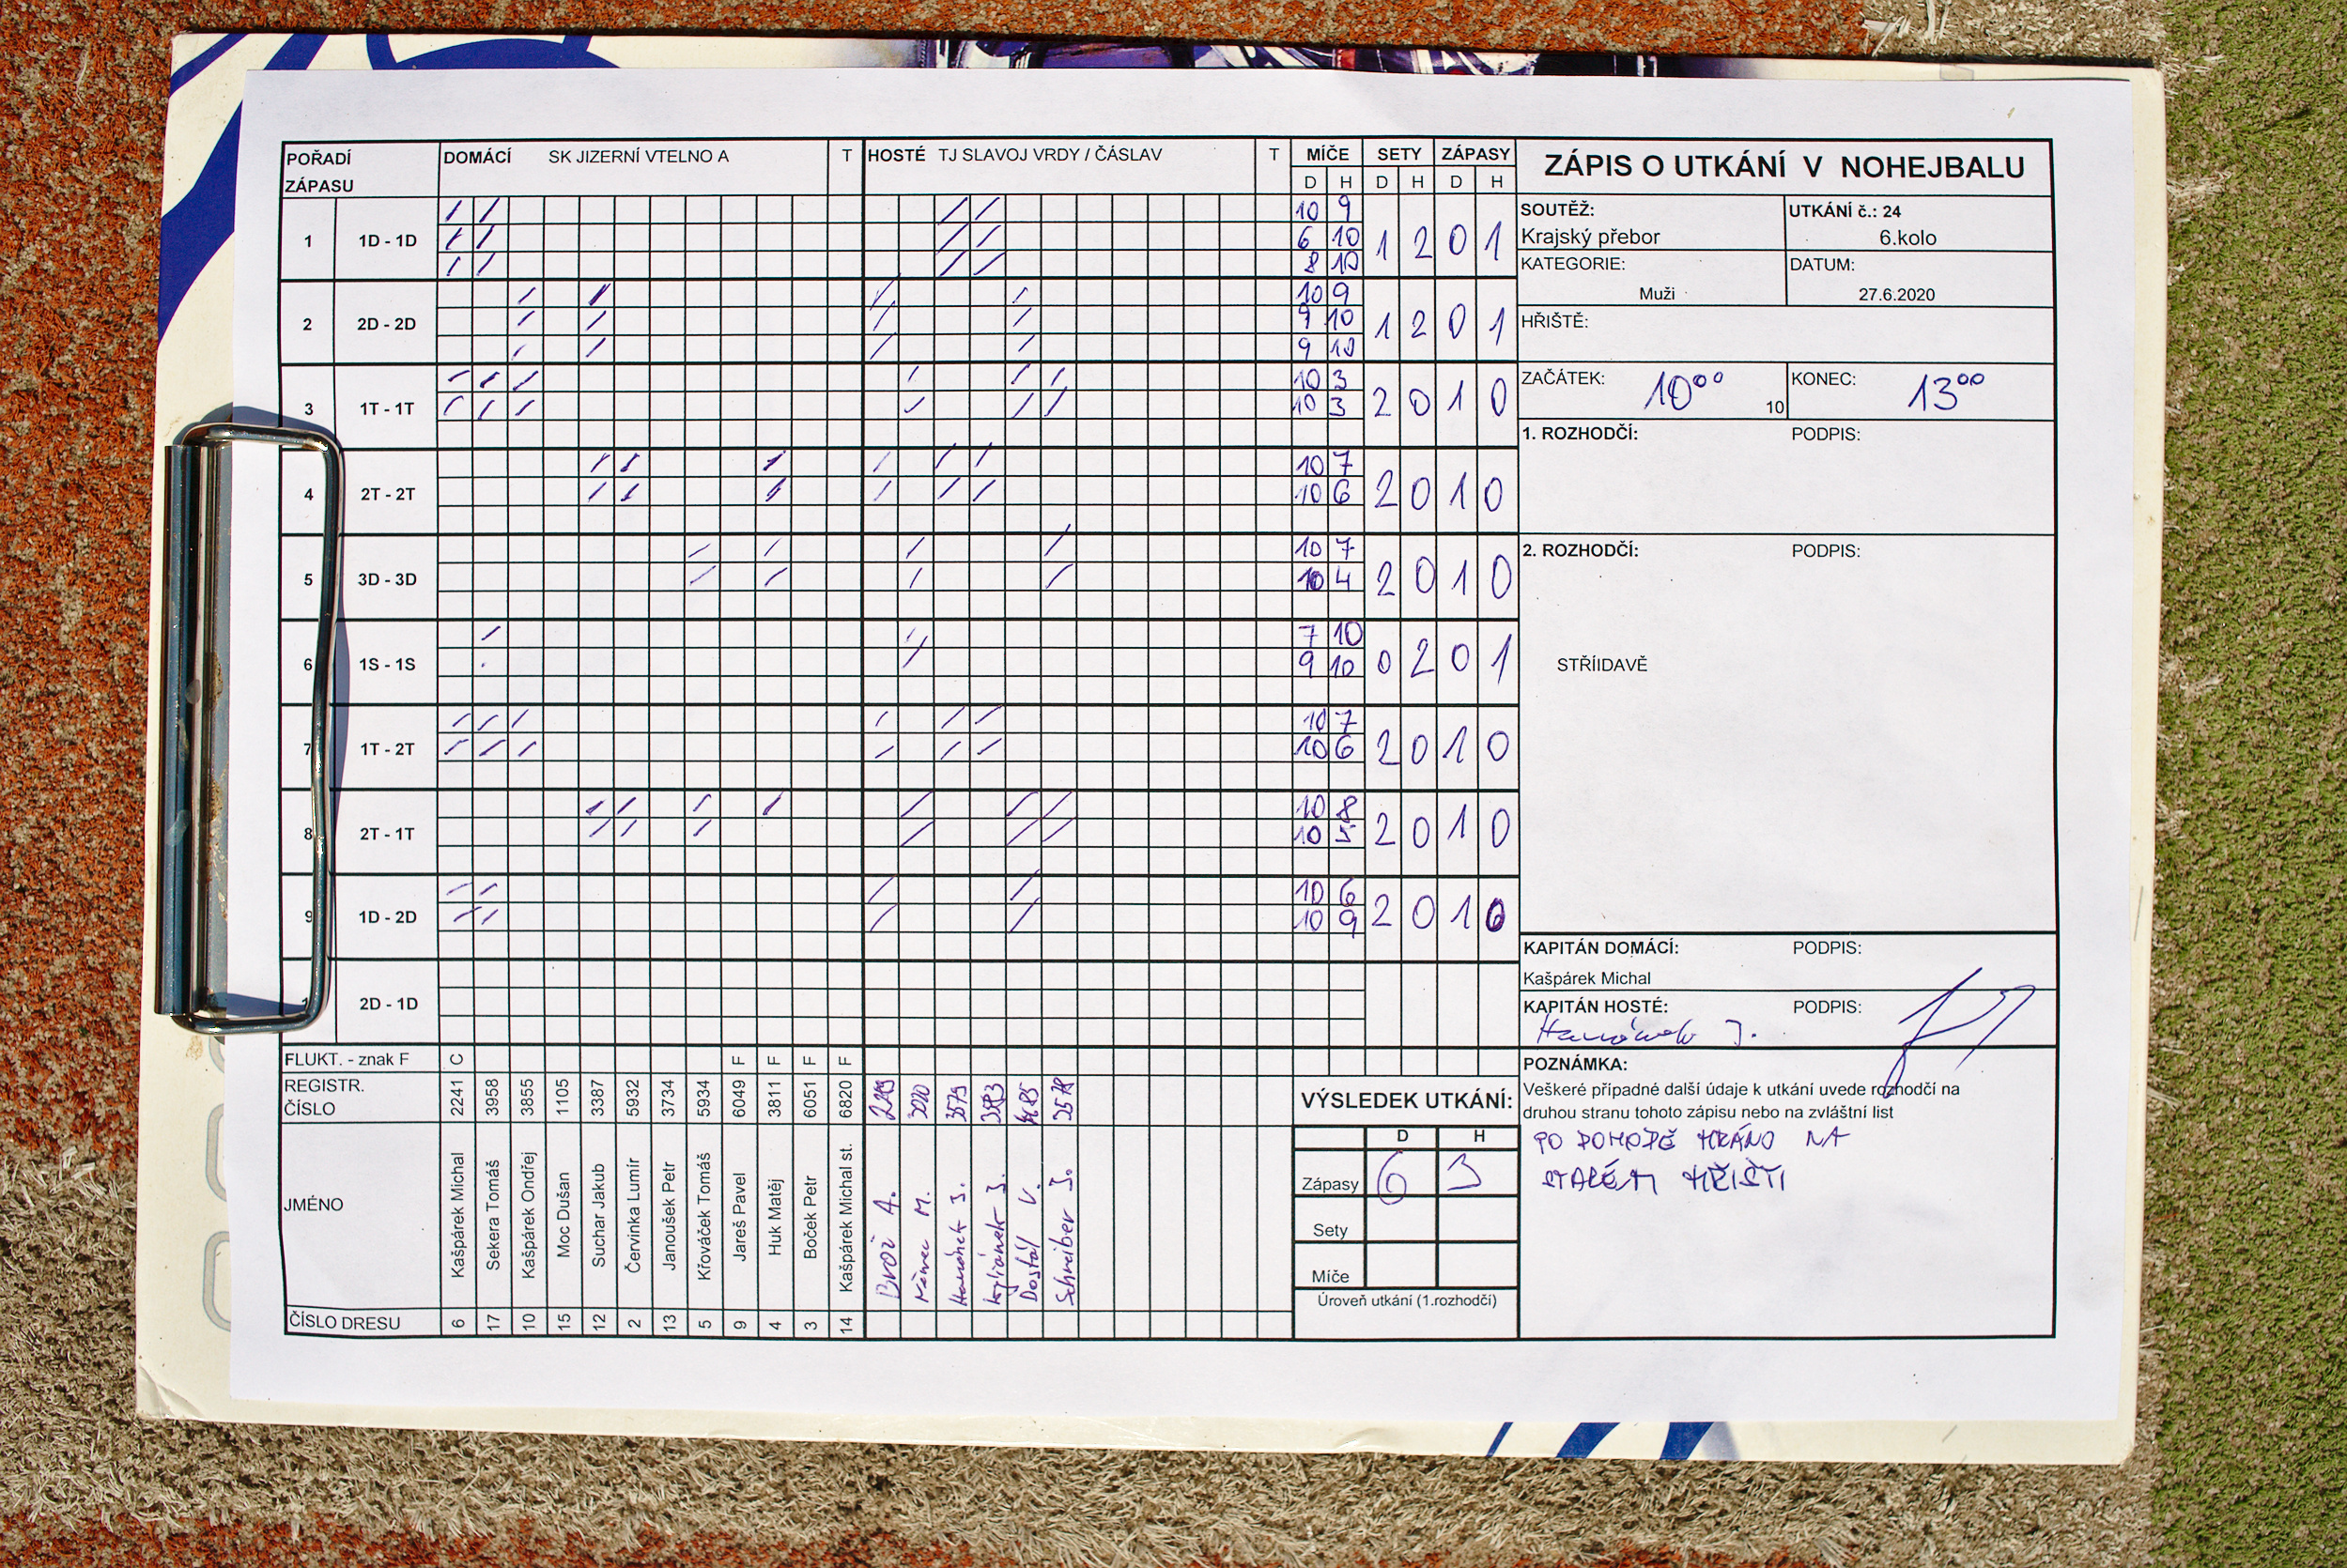 POŘADÍ ZÁPASU DOMÁCÍ SK JIZERNÍ VTELNO A T HOSTÉ TJ SLAVOJ VRDY / ČÁSLAV T MÍČE SETY ZÁPASY
D H D H D H
1 1D - 1D 10 9 1 2 0 1
6 10
8 10
2 2D - 2D 10 9 1 2 0 1
9 10
9 10
3 1T - 1T 10 3 2 0 1 0
10 3
4 2T - 2T 10 7 2 0 1 0
10 6
5 3D - 3D 10 7 2 0 1 0
10 4
6 1S - 1S 7 10 0 2 0 1
9 10
7 1T - 2T 10 7 2 0 1 0
10 6
8 2T - 1T 10 8 2 0 1 0
10 5
9 1D - 2D 10 6 2 0 1 0
10 9
1 2D - 1D
FLUKT. - znak F C F F F F
REGISTR. ČÍSLO 2241 3958 3855 1105 3387 5932 3734 5934 6049 3811 6051 6820 3020 3579 2578
JMÉNO Kašpárek Michal Sekera Tomáš Kašpárek Ondřej Moc Dušan Suchar Jakub Červinka Lumír Janoušek Petr Křováček Tomáš Jareš Pavel Huk Matěj Boček Petr Kašpárek Michal st. Brož A. Němec M. Hanánek J. Dostál V. Schreiber J.
ČÍSLO DRESU 6 17 10 15 12 2 13 5 9 4 3 14
VÝSLEDEK UTKÁNÍ:
D H
Zápasy 6 3
Sety
Míče
Úroveň utkání (1.rozhodčí)
ZÁPIS O UTKÁNÍ V NOHEJBALU
SOUTĚŽ: UTKÁNÍ č.: 24
Krajský přebor 6.kolo
KATEGORIE: DATUM:
Muži 27.6.2020
HŘIŠTĚ:
ZAČÁTEK: 10⁰⁰ 10 KONEC: 13⁰⁰
1. ROZHODČÍ: PODPIS:
2. ROZHODČÍ: PODPIS:
STŘÍIDAVĚ
KAPITÁN DOMÁCÍ: PODPIS:
Kašpárek Michal
KAPITÁN HOSTÉ: PODPIS:
Hanánek J.
POZNÁMKA:
Veškeré případné další údaje k utkání uvede rozhodčí na
druhou stranu tohoto zápisu nebo na zvláštní list
PO DOHODĚ HRÁNO NA
STALÉM HŘIŠTI